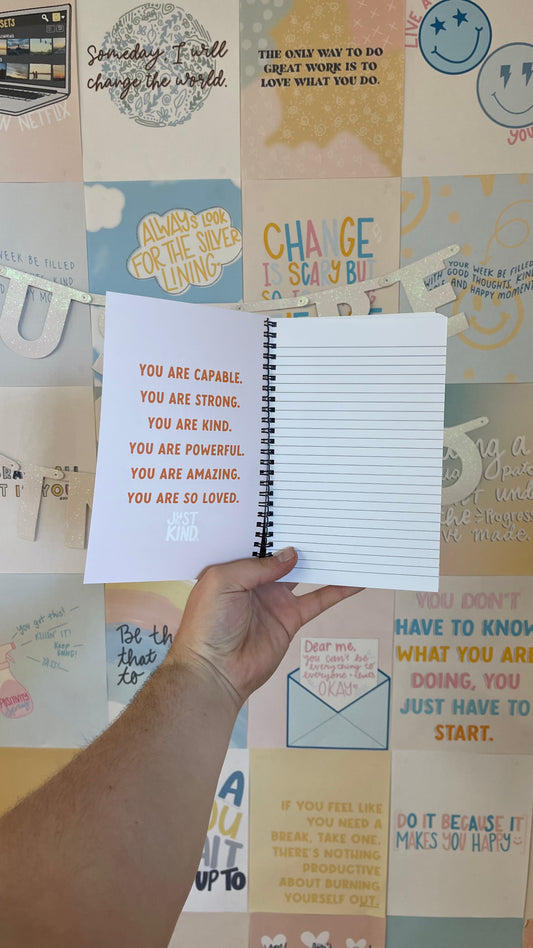 SETS
NETFLIX
Someday I will
change the world.
THE ONLY WAY TO DO
GREAT WORK IS TO
LOVE WHAT YOU DO.
LIVE A
YOU
ALWAYS LOOK
FOR THE SILVER
LINING.
CHANGE
IS SCARY BUT
WEEK BE FILLED
YOUR WEEK BE FILLED
WITH GOOD THOUGHTS, KIND
AND HAPPY MOMENT
YOU ARE CAPABLE.
YOU ARE STRONG.
YOU ARE KIND.
YOU ARE POWERFUL.
YOU ARE AMAZING.
YOU ARE SO LOVED.
JUST
KIND.
a
made.
you got this!
KILLIN' IT!
KEEP
GOING!
POSITIVITY
Be th
that
to
Dear me,
you can't be
everything to
everyone + that's
OKAY
YOU DON'T
HAVE TO KNOW
WHAT YOU ARE
DOING, YOU
JUST HAVE TO
START.
A
UP TO
IF YOU FEEL LIKE
YOU NEED A
BREAK, TAKE ONE.
THERE'S NOTHING
PRODUCTIVE
ABOUT BURNING
YOURSELF OUT.
DO IT BECAUSE IT
MAKES YOU HAPPY